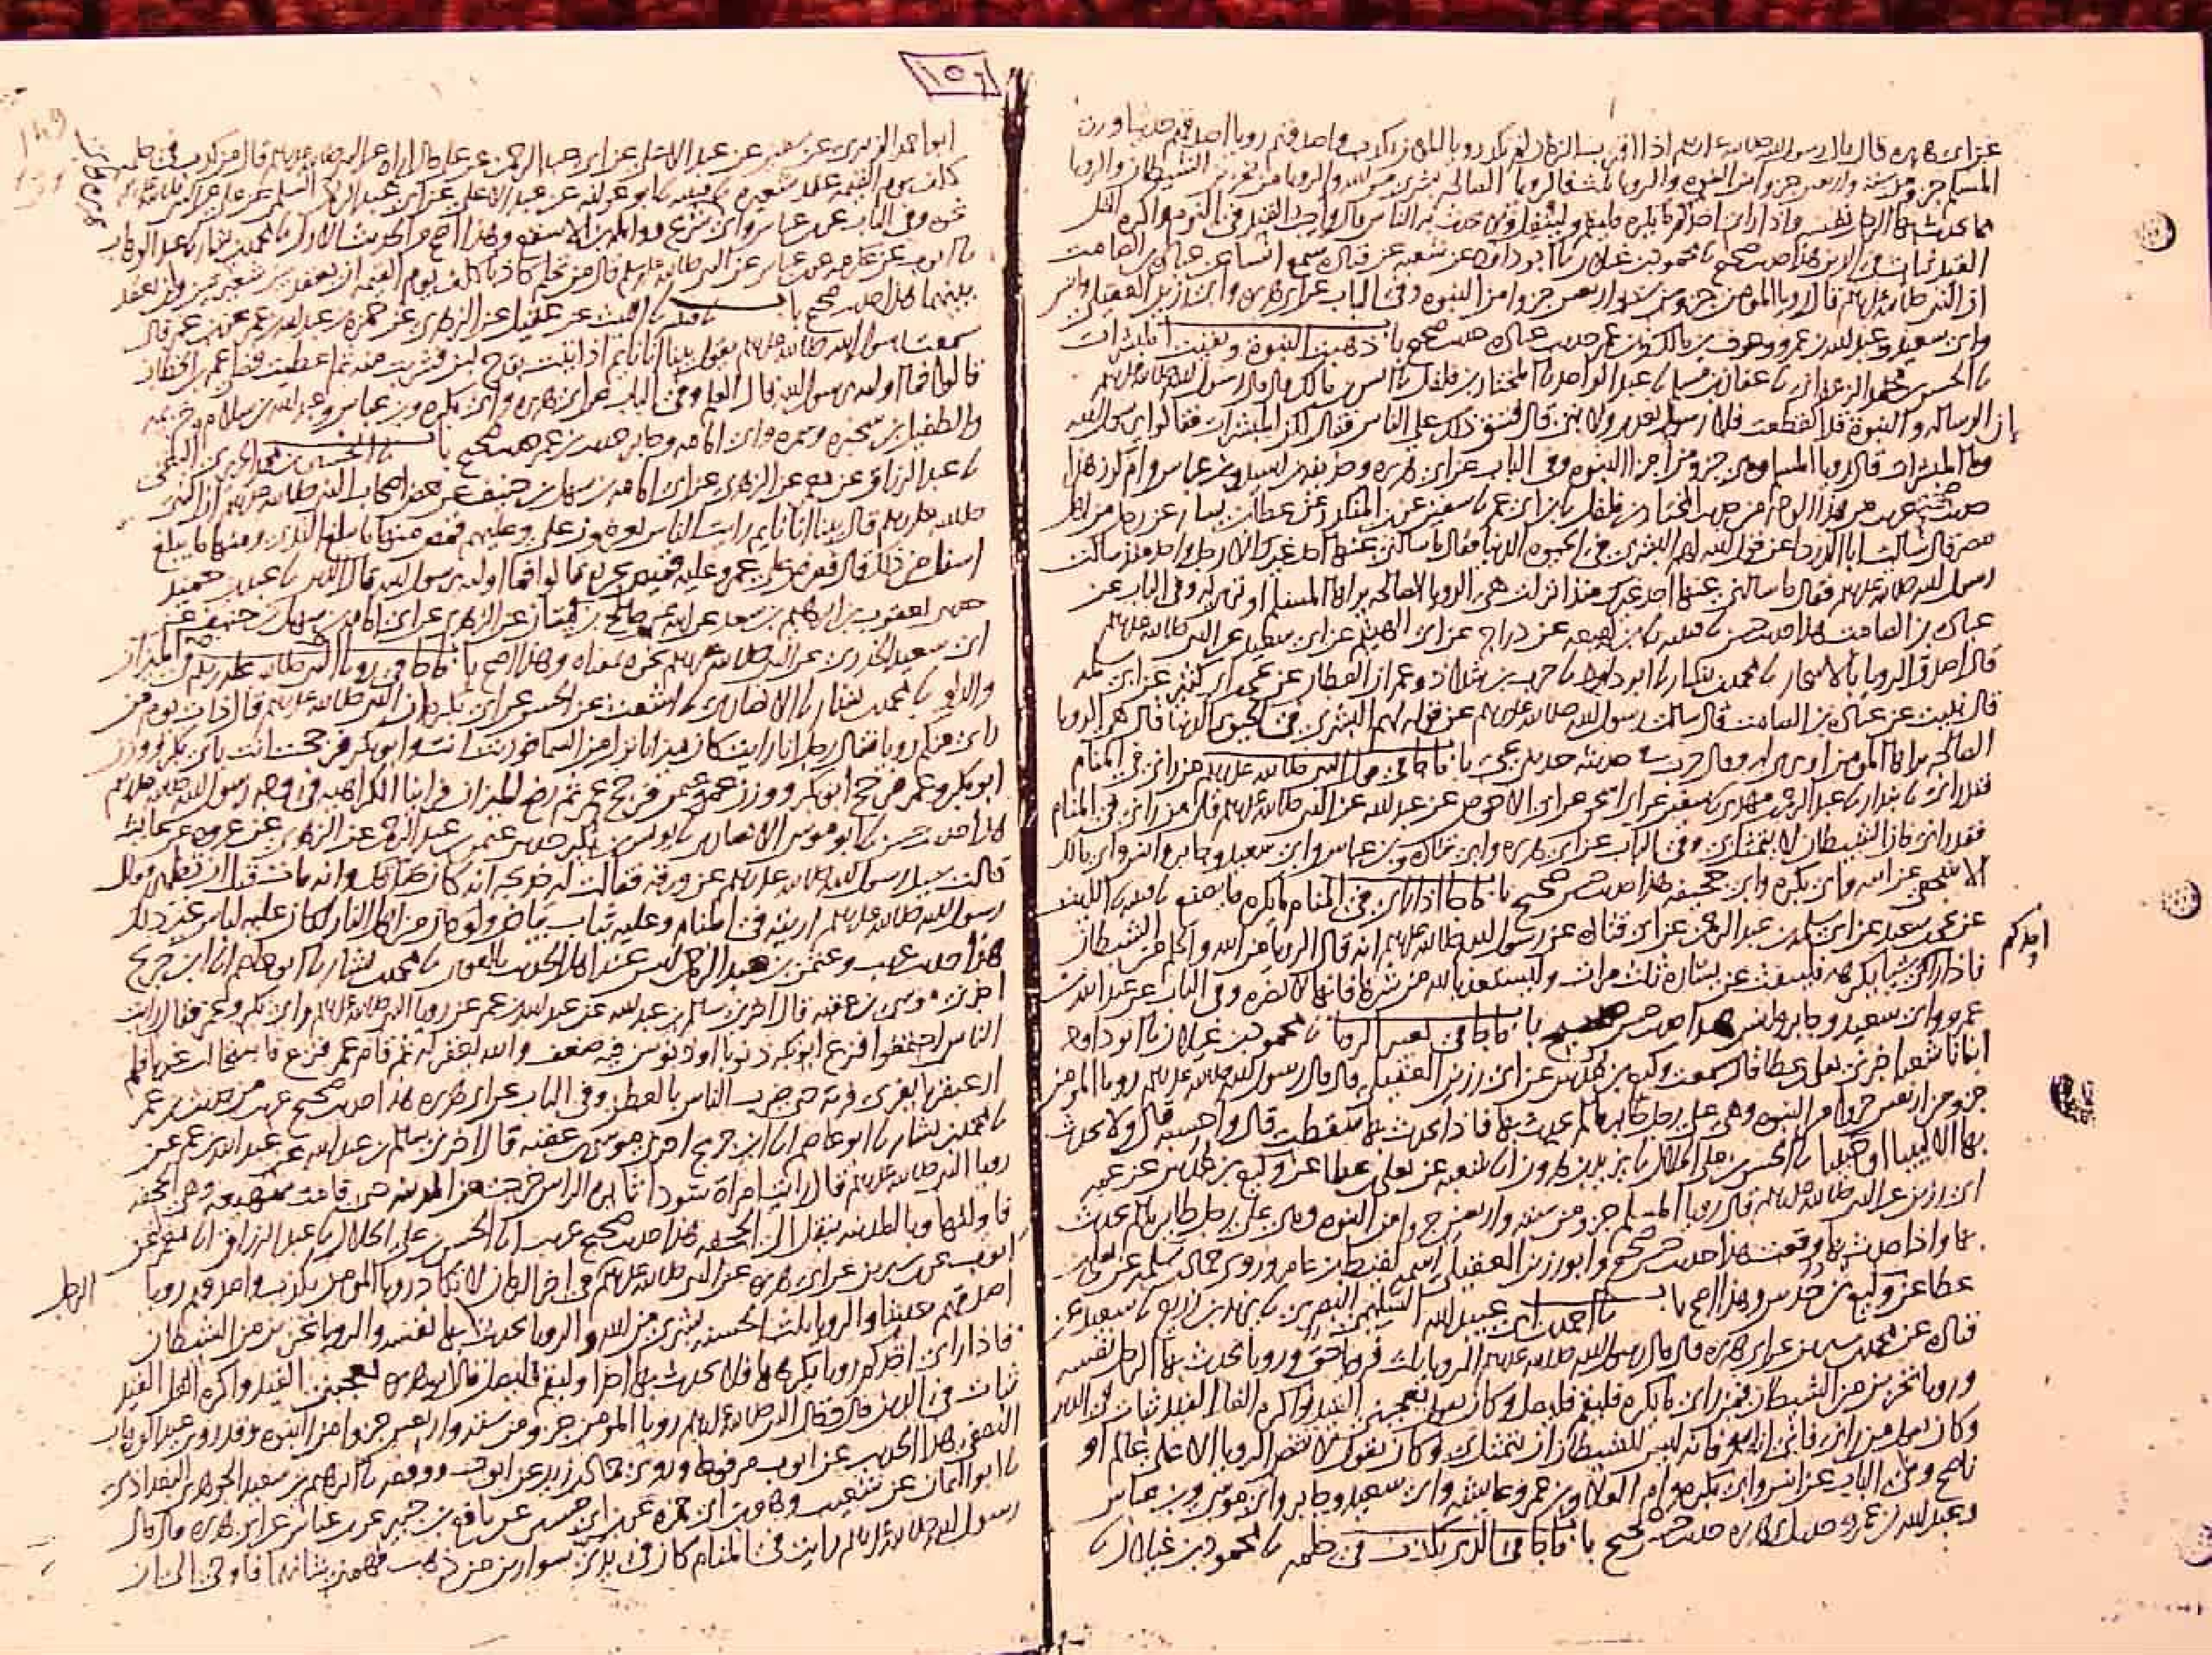 عن ابي هريره قال قال رسول الله صلى الله عليه وسلم اذا اقترب الزمان لم تكد رويا المومن تكذب واصدقهم رويا اصدقهم حديثا ورويا
المسلم جزو من سته واربعين جزوا من النبوه والرويا ثلث فالرويا الصالحه بشرى من الله والرويا من تحزين الشيطان والرويا
مما يحدث بها الرجل نفسه واذا راى احدكم ما يكره فليقم وليتفل ولا يحدث به الناس قال واحب القيد في النوم واكره الغل
القيد ثبات في الدين هذا حديث صحيح نا محمود بن غيلان نا ابو داود عن شعبه عن قتاده سمع انسا عن عباده بن الصامت
ان النبي صلى الله عليه وسلم قال رويا المومن جزو من سته واربعين جزوا من النبوه وفي الباب عن ابي هريره وابي رزين العقيلي وانس
وابي سعيد وعبد الله بن عمرو وعوف بن مالك وابن عمر حديث عباده حديث صحيح باب ذهبت النبوه وبقيت المبشرات
نا الحسن بن محمد الزعفراني نا عفان بن مسلم نا عبد الواحد نا المختار بن فلفل نا انس بن مالك قال قال رسول الله صلى الله عليه وسلم
ان الرساله والنبوة قد انقطعت فلا رسول بعدي ولا نبي قال فشق ذلك على الناس فقال لكن المبشرات فقالوا يا رسول الله
وما المبشرات قال رويا المسلم وهي جزو من اجزا النبوه وفي الباب عن ابي هريره وحذيفه بن اسيد وابن عباس وام كرز هذا
حديث صحيح غريب من هذا الوجه من حديث المختار بن فلفل نا ابن ابي عمر نا سفين عن ابن المنكدر عن عطا بن يسار عن رجل من اهل
مصر قال سالت ابا الدردا عن قول الله لهم البشرى في الحيوه الدنيا فقال ما سالني عنها احد غيرك الا رجل واحد منذ سالت
رسول الله صلى الله عليه وسلم فقال ما سالني عنها احد غيرك منذ انزلت هي الرويا الصالحه يراها المسلم او ترى له وفي الباب عن
عباده بن الصامت هذا حديث حسن نا قتيبه نا ابن لهيعه عن دراج عن ابي الهيثم عن ابي سعيد عن النبي صلى الله عليه وسلم
قال اصدق الرويا بالاسحار نا محمد بن بشار نا ابو داود نا حرب بن شداد وعمران القطان عن يحيى بن ابي كثير عن ابي سلمه
قال نبيت عن عباده بن الصامت قال سالت رسول الله صلى الله عليه وسلم عن قوله لهم البشرى في الحيوه الدنيا قال هي الرويا
الصالحه يراها المومن او ترى له وقال حرب في حديثه حدثني يحيى باب ما جا في قول النبي صلى الله عليه وسلم من راني في المنام
فقد راني نا بندار نا عبد الرحمن بن مهدي نا سفين عن ابي اسحق عن ابي الاحوص عن عبد الله عن النبي صلى الله عليه وسلم قال من راني في المنام
فقد راني فان الشيطان لا يتمثل بي وفي الباب عن ابي هريره وابي قتاده وابن عباس وابي سعيد وجابر وانس وابي مالك
الاشجعي عن ابيه وابي بكره وابي جحيفه هذا حديث حسن صحيح باب ما جا اذا راى في المنام ما يكره ما يصنع نا قتيبه نا الليث
عن يحيى بن سعيد عن ابي سلمه بن عبد الرحمن عن ابي قتاده عن رسول الله صلى الله عليه وسلم انه قال الرويا من الله والحلم من الشيطان
احدكم
فاذا راى شيا يكرهه فلينفث عن يساره ثلث مرات وليستعذ بالله من شرها فانها لا تضره وفي الباب عن عبد الله بن
عمرو وابي سعيد وجابر وانس هذا حديث حسن صحيح باب ما جا في تعبير الرويا نا محمود بن غيلان نا ابو داود
انبانا شعبه اخبرني يعلى بن عطا قال سمعت وكيع بن عدس عن ابي رزين العقيلي قال قال رسول الله صلى الله عليه وسلم رويا المومن
جزو من اربعين جزوا من النبوه وهي على رجل طاير ما لم يحدث بها فاذا تحدث بها سقطت قال واحسبه قال ولا يحدث
بها الا لبيبا او حبيبا نا الحسن بن علي الخلال نا يزيد بن هرون انا شعبه عن يعلى بن عطا عن وكيع بن عدس عن عمه
ابي رزين عن النبي صلى الله عليه وسلم قال رويا المسلم جزو من سته واربعين جزوا من النبوه وهي على رجل طاير ما لم يحدث
بها واذا حدث بها وقعت هذا حديث حسن صحيح وابو رزين العقيلي اسمه لقيط بن عامر وروى حماد بن سلمه عن يعلى بن
عطا عن وكيع بن حدس وهذا اصح باب نا احمد بن ابي عبيد الله السليمي البصري نا يزيد بن زريع نا سعيد عن
قتاده عن محمد بن سيرين عن ابي هريره قال قال رسول الله صلى الله عليه وسلم الرويا ثلث فرويا حق ورويا يحدث بها الرجل نفسه
ورويا تحزين من الشيطان فمن راى ما يكره فليقم فليصل وكان يقول يعجبني القيد واكره الغل القيد ثبات في الدين
وكان يقول من راني فاني انا هو فانه ليس للشيطان ان يتمثل بي وكان يقول لا تقص الرويا الا على عالم او
ناصح وفي الباب عن انس وابي بكره وام العلا وابن عمر وعايشه وابي سعيد وجابر وابي موسى وابن عباس
وعبد الله بن عمرو حديث ابي هريره حديث حسن صحيح باب ما جا في الذي يكذب في حلمه نا محمود بن غيلان نا
١٥٦
ابو احمد الزبيري عن سفين عن عبد الاعلى عن ابي عبد الرحمن عن علي قال اراه عن النبي صلى الله عليه وسلم قال من كذب في حلمه
كلف يوم القيمه عقد شعيره نا قتيبه نا ابو عوانه عن عبد الاعلى عن ابي عبد الرحمن السلمي عن علي عن النبي صلى الله عليه وسلم
نحوه وفي الباب عن ابن عباس وابي شريح وواثله بن الاسقع وهذا اصح من الحديث الاول نا محمد بن بشار نا عبد الوهاب
نا ايوب عن عكرمه عن ابن عباس عن النبي صلى الله عليه وسلم قال من تحلم كاذبا كلف يوم القيمه ان يعقد بين شعيرتين ولن يعقد
بينهما هذا حديث صحيح باب نا قتيبه نا الليث عن عقيل عن الزهري عن حمزه بن عبد الله بن عمر عن ابن عمر قال
سمعت رسول الله صلى الله عليه وسلم يقول بينا انا نايم اذ اتيت بقدح لبن فشربت منه ثم اعطيت فضلي عمر بن الخطاب
قالوا فما اولته يا رسول الله قال العلم وفي الباب عن ابي هريره وابي بكره وابن عباس وعبد الله بن سلام وخزيمه
والطفيل بن سخبره وسمره وابي امامه وجابر حديث ابن عمر حديث صحيح باب نا الحسين بن محمد الجريري البلخي
نا عبد الرزاق عن معمر عن الزهري عن ابي امامه بن سهل بن حنيف عن بعض اصحاب النبي صلى الله عليه وسلم ان النبي
صلى الله عليه وسلم قال بينا انا نايم رايت الناس يعرضون علي وعليهم قمص منها ما يبلغ الثدي ومنها ما يبلغ
اسفل من ذلك قال فعرض علي عمر وعليه قميص يجره قالوا فما اولته يا رسول الله قال الدين نا عبد بن حميد
حدثني يعقوب بن ابراهيم بن سعد عن ابيه عن صالح بن كيسان عن الزهري عن ابي امامه بن سهل بن حنيف عن
ابي سعيد الخدري عن النبي صلى الله عليه وسلم نحوه بمعناه وهذا اصح باب ما جا في رويا النبي صلى الله عليه وسلم في الميزان
والدلو نا محمد بن بشار نا الانصاري نا اشعث عن الحسن عن ابي بكره ان النبي صلى الله عليه وسلم قال ذات يوم من
راى منكم رويا فقال رجل انا رايت كان ميزانا نزل من السما فوزنت انت وابو بكر فرجحت انت بابي بكر ووزن
ابو بكر وعمر فرجح ابو بكر ووزن عمر وعثمن فرجح عمر ثم رفع الميزان فراينا الكراهيه في وجه رسول الله صلى الله عليه وسلم
هذا حديث حسن نا ابو موسى الانصاري نا يونس بن بكير حدثني عثمن بن عبد الرحمن عن الزهري عن عروه عن عايشه
قالت سيل رسول الله صلى الله عليه وسلم عن ورقه فقالت له خديجه انه كان صدقك وانه مات قبل ان تظهر فقال
رسول الله صلى الله عليه وسلم اريته في المنام وعليه ثياب بياض ولو كان من اهل النار لكان عليه لباس غير ذلك
هذا حديث غريب وعثمن بن عبد الرحمن ليس عند اهل الحديث بالقوي نا محمد بن بشار نا ابو عاصم انا ابن جريج
اخبرني موسى بن عقبه قال اخبرني سالم بن عبد الله عن عبد الله بن عمر عن رويا النبي صلى الله عليه وسلم وابي بكر وعمر فقال رايت
الناس اجتمعوا فنزع ابو بكر ذنوبا او ذنوبين فيه ضعف والله يغفر له ثم قام عمر فنزع فاستحالت غربا فلم
ار عبقريا يفري فريه حتى ضرب الناس بالعطن وفي الباب عن ابي هريره هذا حديث صحيح غريب من حديث ابن عمر
نا محمد بن بشار نا ابو عاصم انا ابن جريج اخبرني موسى بن عقبه قال اخبرني سالم بن عبد الله عن عبد الله بن عمر عن
رويا النبي صلى الله عليه وسلم قال رايت امراة سودا ثايره الراس خرجت من المدينه حتى قامت بمهيعه وهي الجحفه
فاولتها وبا المدينه ينقل الى الجحفه هذا حديث صحيح غريب نا الحسن بن علي الخلال نا عبد الرزاق انا معمر عن
ايوب عن ابن سيرين عن ابي هريره عن النبي صلى الله عليه وسلم في اخر الزمان لا تكاد رويا المومن تكذب واصدقهم رويا
الرجل
اصدقهم حديثا والرويا ثلث الحسنه بشرى من الله والرويا يحدث بها نفسه والرويا تحزين من الشيطان
فاذا راى احدكم رويا يكرهها فلا يحدث بها احدا وليقم فليصل قال ابو هريره يعجبني القيد واكره الغل القيد
ثبات في الدين قال وقال النبي صلى الله عليه وسلم رويا المومن جزو من سته واربعين جزوا من النبوه وقد روى عبد الوهاب
الثقفي هذا الحديث عن ايوب مرفوعا وروى حماد بن زيد عن ايوب ووقفه نا ابراهيم بن سعيد الجوهري البغدادي
نا ابو اليمان عن شعيب وهو ابن ابي حمزه عن ابن ابي حسين عن نافع بن جبير عن ابن عباس عن ابي هريره قال قال
رسول الله صلى الله عليه وسلم رايت في المنام كان في يدي سوارين من ذهب فهمني شانهما فاوحي الي ان